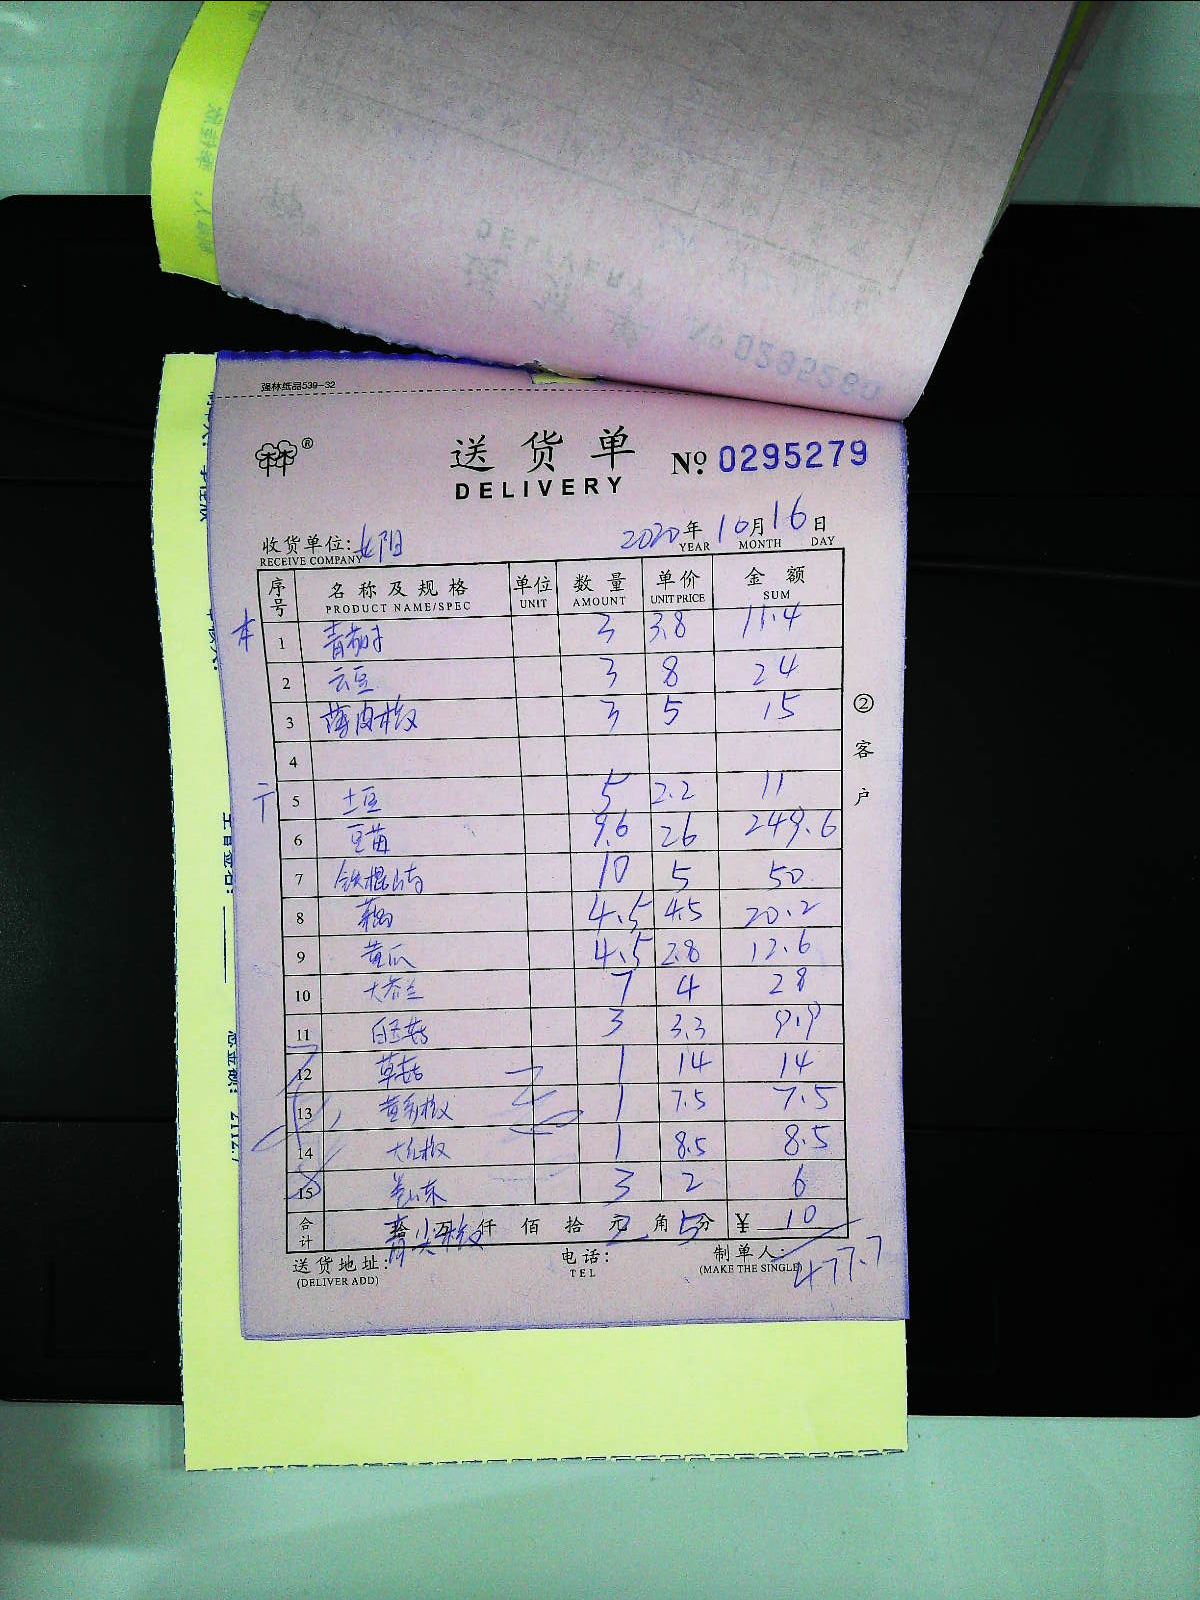 强林纸品539-32
® 送货单 Nº 0295279
DELIVERY
收货单位: 2020年10月16日
RECEIVE COMPANY YEAR MONTH DAY
序号 名称及规格 单位 数量 单价 金额
PRODUCT NAME/SPEC UNIT AMOUNT UNIT PRICE SUM
1 3 3.8 11.4
2 云豆 3 8 24
3 薄皮椒 3 5 15
4
5 土豆 5 2.2 11
6 豆苗 9.6 26 249.6
7 铁棍山药 10 5 50
8 4.5 4.5 20.2
9 黄瓜 4.5 2.8 12.6
10 7 4 28
11 白玉菇 3 3.3 9.9
12 草菇 1 14 14
13 黄彩椒 1 7.5 7.5
14 大红椒 1 8.5 8.5
15 3 2 6
合计 仟 佰 拾 元 角 分 ¥ 10
青尖椒 2 5
送货地址: 电话: 制单人:
(DELIVER ADD) TEL (MAKE THE SINGLE)
477.7
② 客户